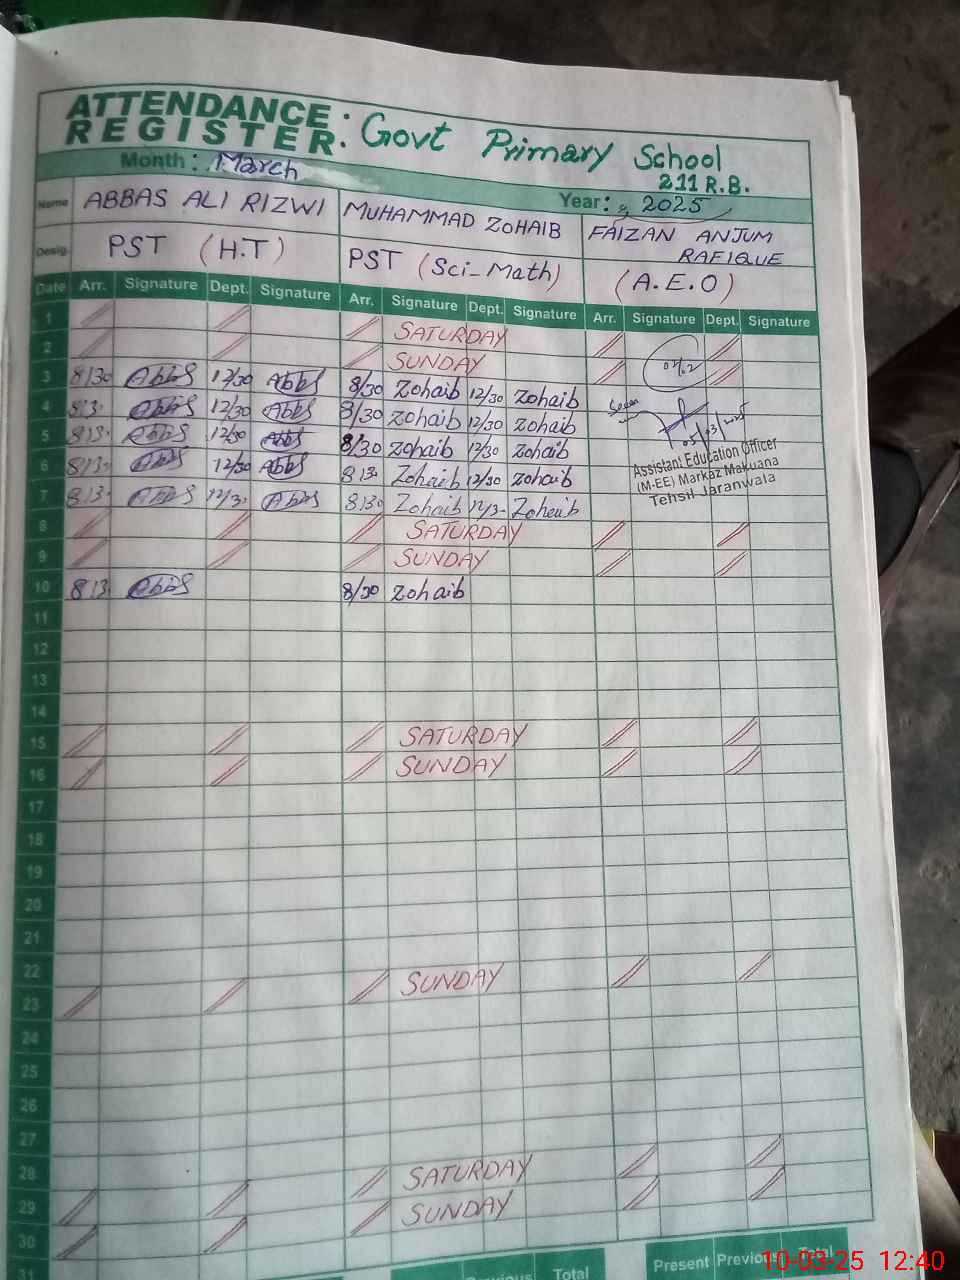 ATTENDANCE
REGISTER
: Govt Primary School
211 R.B.
Month : March
Year : 2025
Name ABBAS ALI RIZWI MUHAMMAD ZOHAIB FAIZAN ANJUM RAFIQUE
Desig. PST (H.T) PST (Sci-Math) (A.E.O)
Date Arr. Signature Dept. Signature Arr. Signature Dept. Signature Arr. Signature Dept. Signature
1 SATURDAY
2 SUNDAY
3 8/30 Abbs 12/30 Abbs 8/30 Zohaib 12/30 Zohaib
4 8/3 Abbs 12/30 Abbs 8/30 Zohaib 12/30 Zohaib
5 8/3 Abbs 12/30 Abbs 8/30 Zohaib 12/30 Zohaib
05/03/2025
6 8/3 Abbs 12/30 Abbs 8/30 Zohaib 12/30 Zohaib
Assistant Education Officer
(M-EE) Markaz Makuana
Tehsil Jaranwala
7 8/3 Abbs 12/3 Abbs 8/30 Zohaib 12/3 Zohaib
8 SATURDAY
9 SUNDAY
10 8/3 Abbs 8/30 Zohaib
11
12
13
14
15 SATURDAY
16 SUNDAY
17
18
19
20
21
22
23 SUNDAY
24
25
26
27
28
29 SATURDAY
30 SUNDAY
31
Previous Total Present Previous Total
10-03-25 12:40